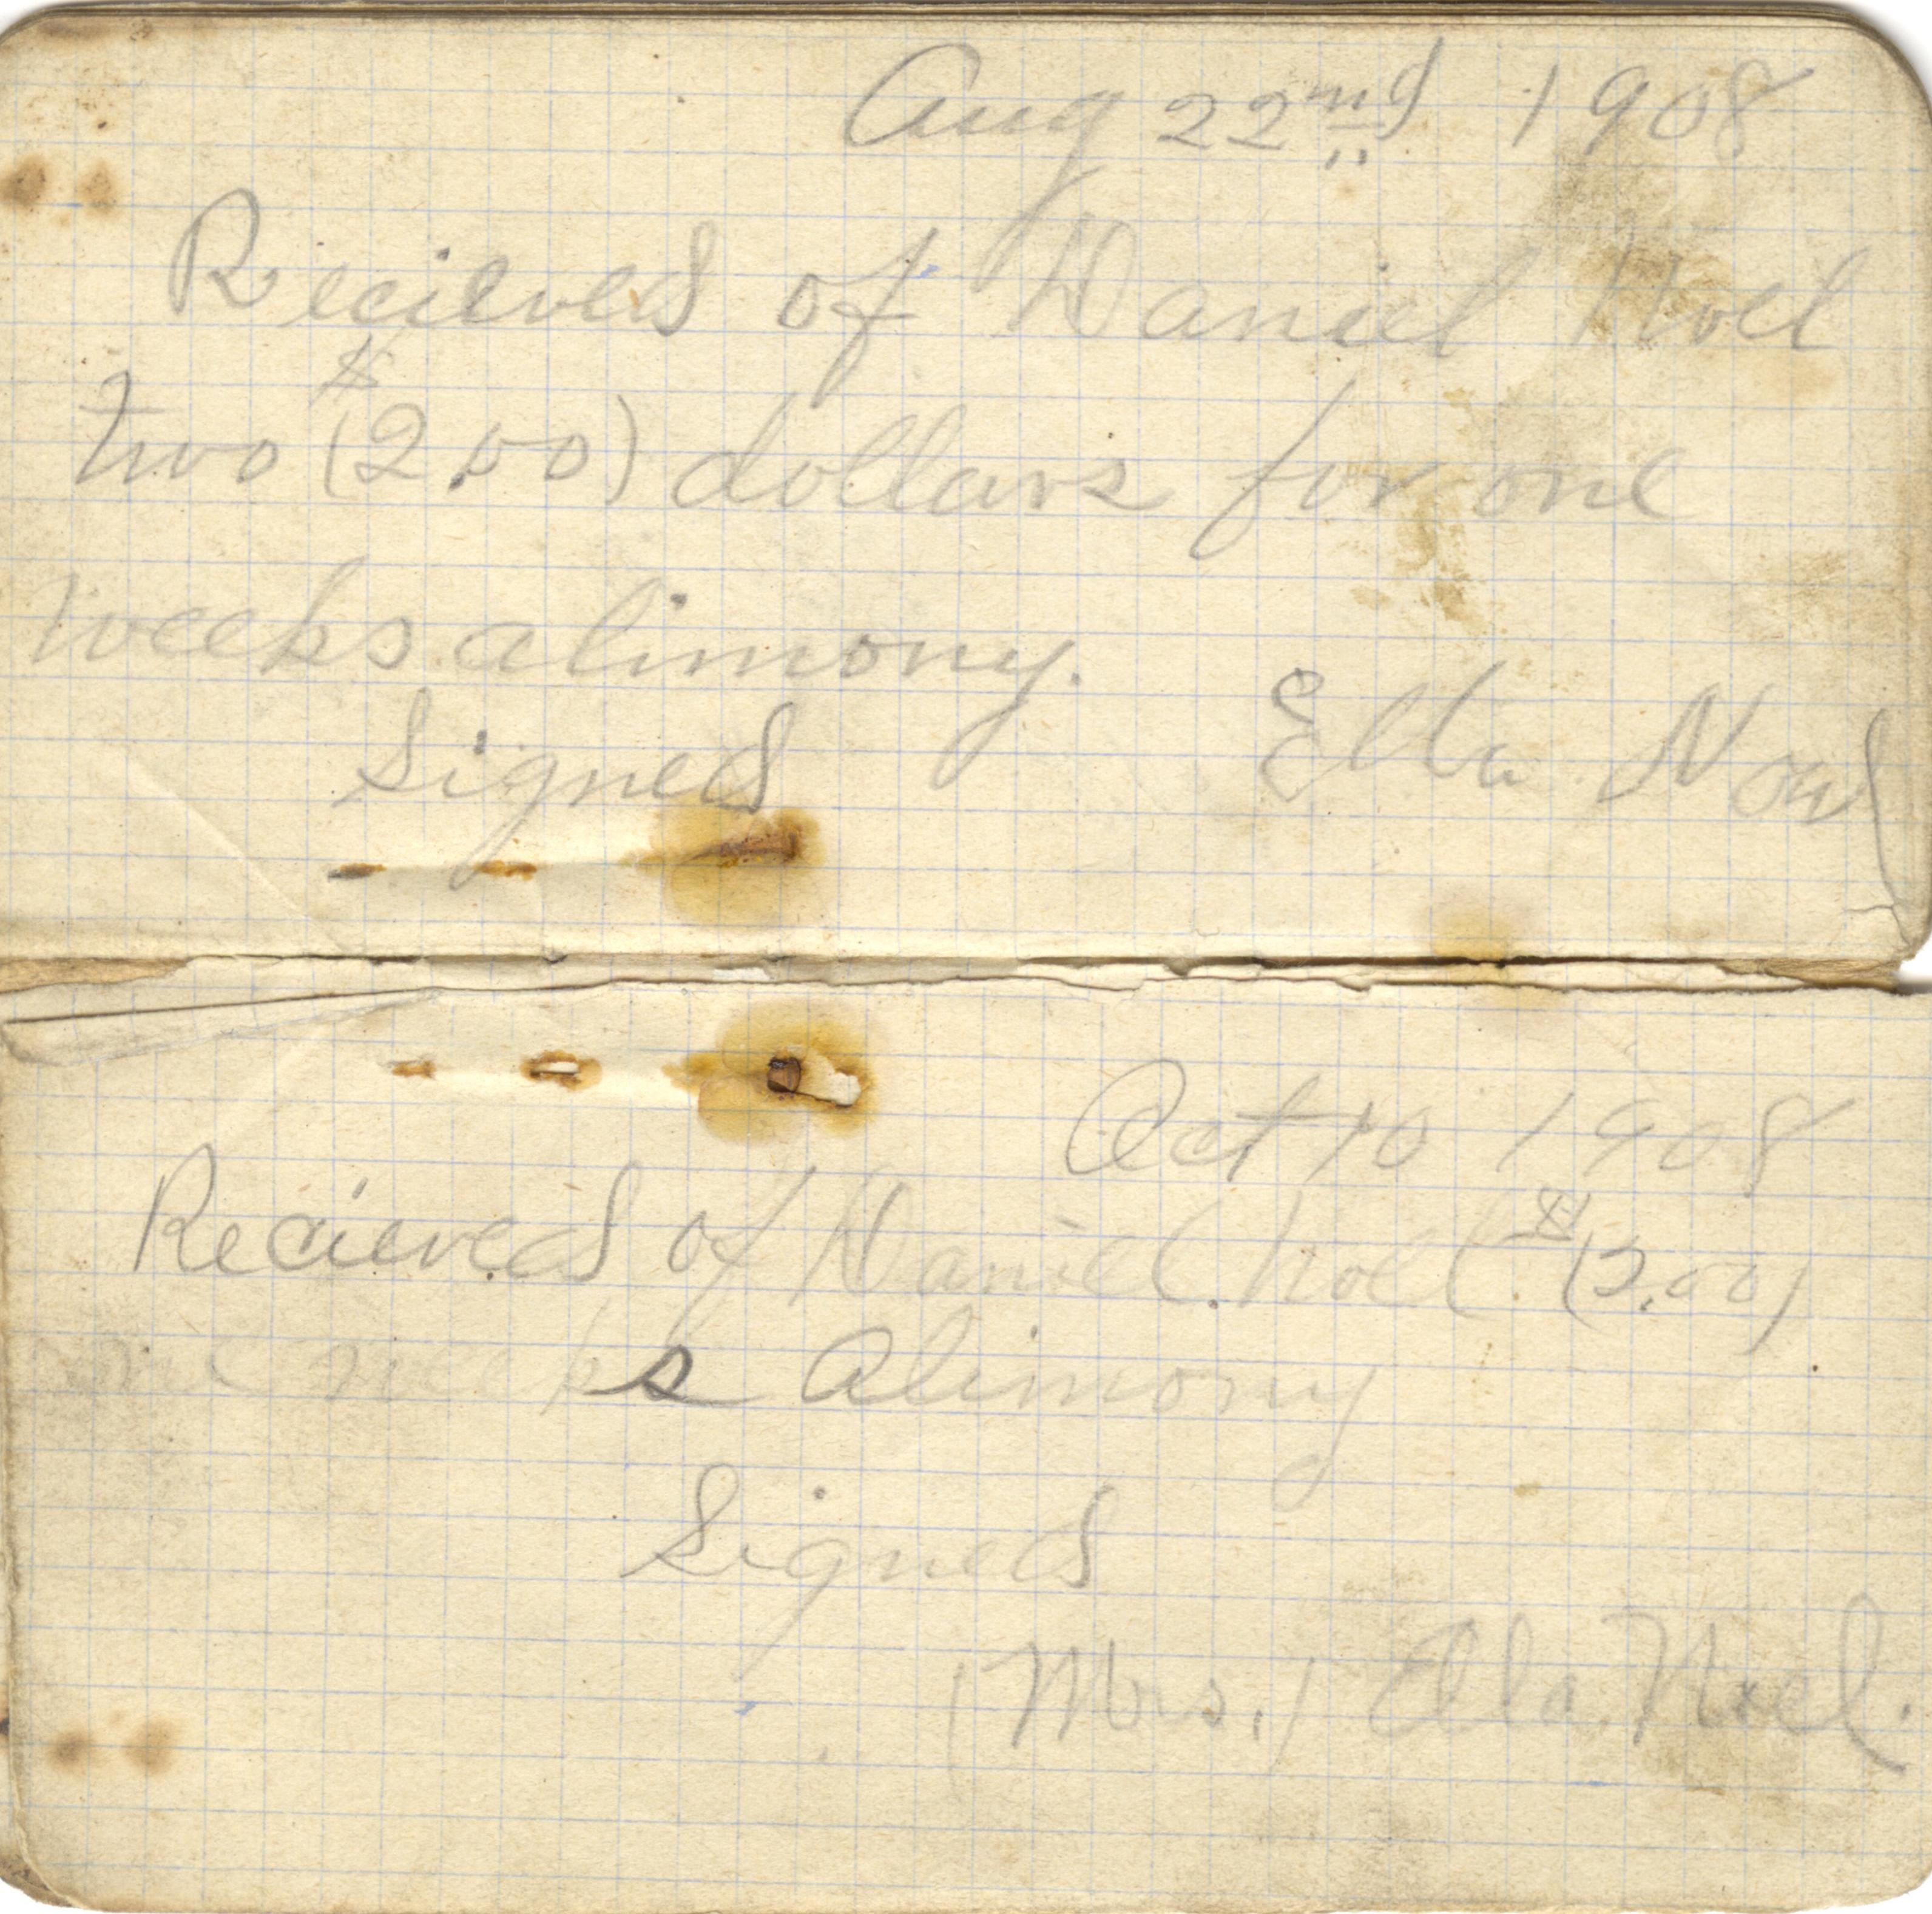 Aug 22nd 1908
Recieved of Daniel Noel
two $(2.00) dollars for one
weeks alimony.
Signed Ella Noel
Oct 10 1908
Recieved of Daniel Noel $(3.00)
one weeks Alimony
Signed
(Mrs.) Ella Noel.